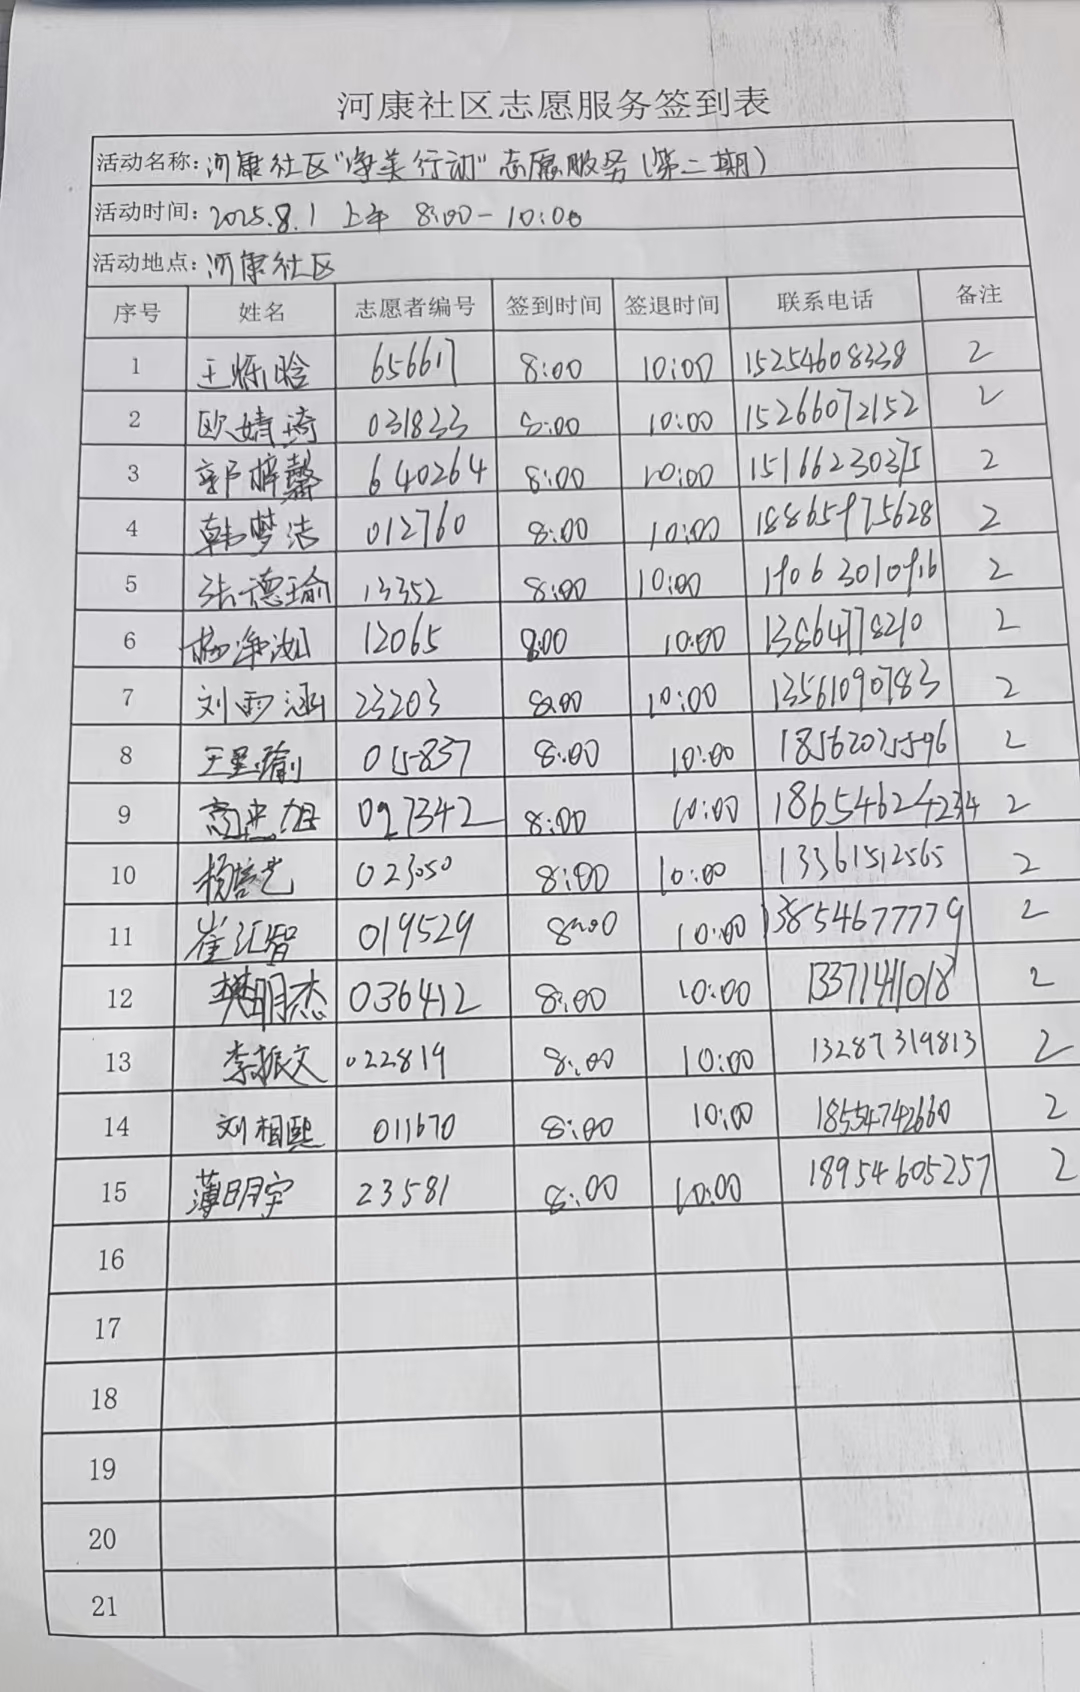 河康社区志愿服务签到表
活动名称: 河康社区"净美行动"志愿服务(第二期)
活动时间: 2025.8.1 上午 8:00-10:00
活动地点: 河康社区
序号 姓名 志愿者编号 签到时间 签退时间 联系电话 备注
1 王烁晗 656617 8:00 10:00 15254608338 2
2 欧婧琦 031833 8:00 10:00 15266072152 2
3 郭梓馨 640264 8:00 10:00 15166230375 2
4 韩梦洁 012760 8:00 10:00 18865975628 2
5 张德瑜 13352 8:00 10:00 19063010916 2
6 杨净 12065 8:00 10:00 13864778210 2
7 刘雨涵 23203 8:00 10:00 13561090783 2
8 王星瑜 015837 8:00 10:00 18562075596 2
9 高 旭 027342 8:00 10:00 18654624234 2
10 杨培艺 023050 8:00 10:00 13361512565 2
11 崔汇智 019529 8:00 10:00 13854677779 2
12 樊明杰 036412 8:00 10:00 13371411018 2
13 李振文 022819 8:00 10:00 13287319813 2
14 刘相熙 011670 8:00 10:00 18554742660 2
15 薄明宇 23581 8:00 10:00 18954605257 2
16
17
18
19
20
21